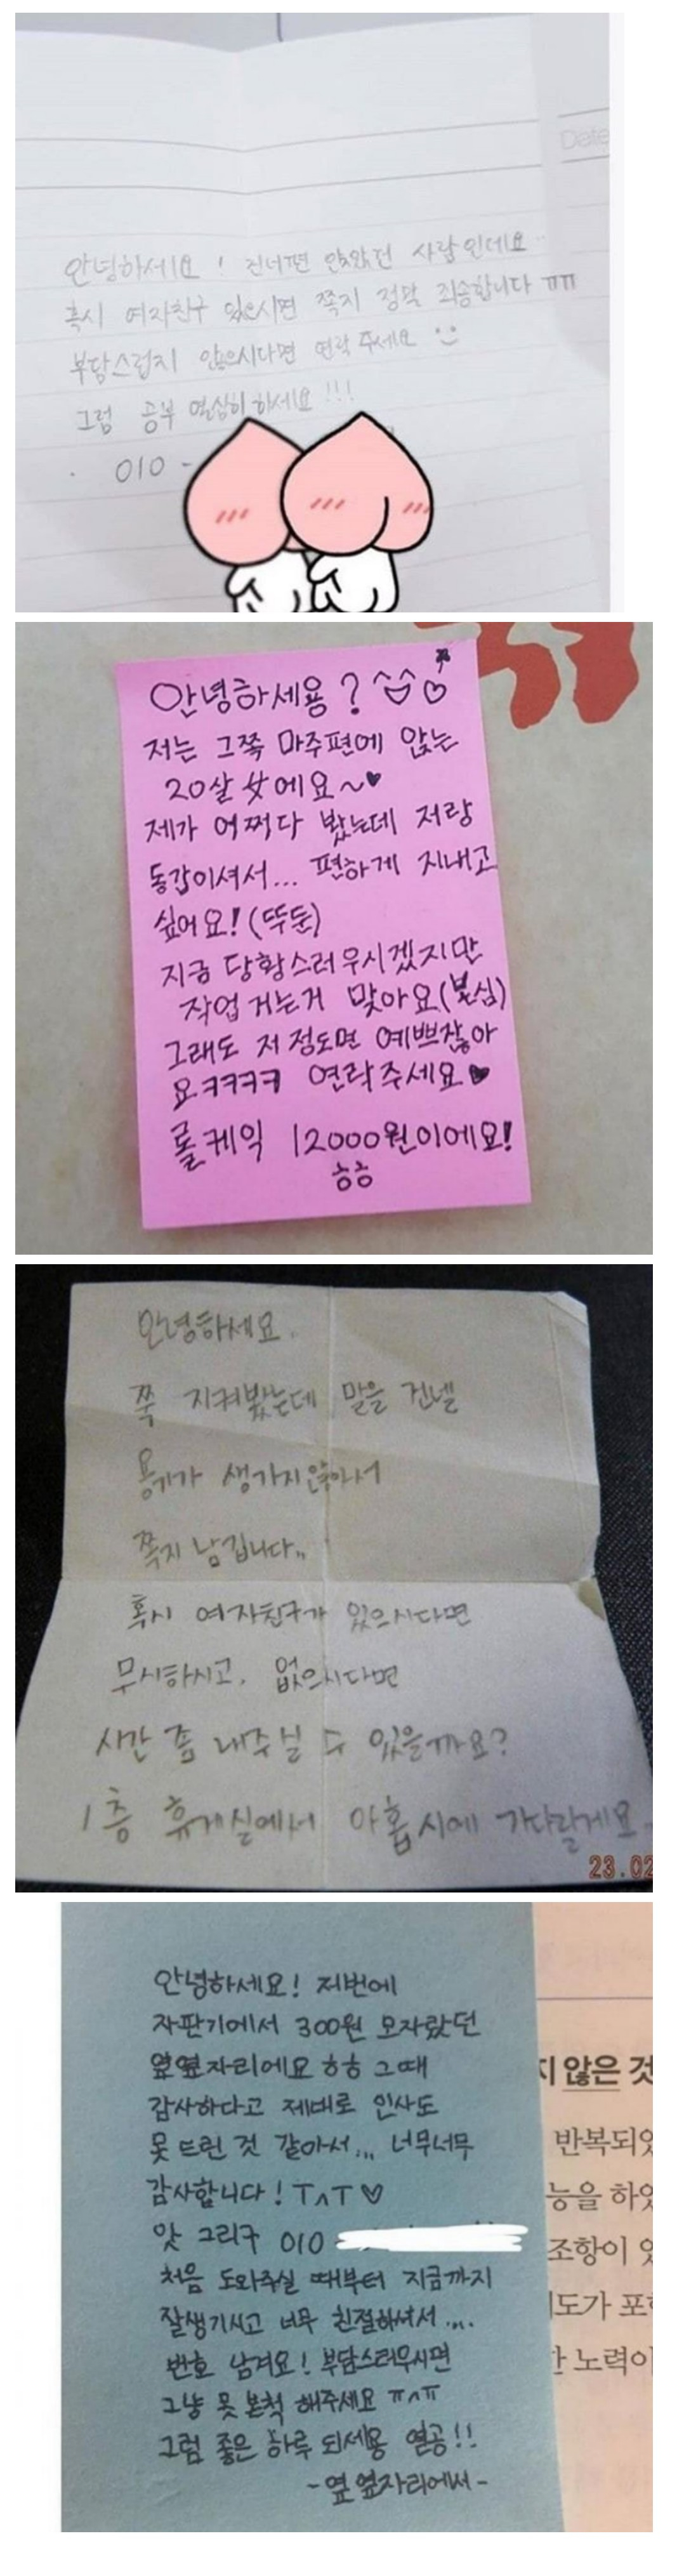 Date
안녕하세요! 건너편 앉았던 사람인데요..
혹시 여자친구 있으시면 쪽지 정말 죄송합니다 ㅠㅠ
부담스럽지 않으시다면 연락 주세요
그럼 공부 열심히 하세요!!!
010 -
안녕하세용?
저는 그쪽 마주편에 앉는
20살 女에요~♥
제가 어쩌다 봤는데 저랑
동갑이셔서... 편하게 지내고
싶어요! (뚜둔)
지금 당황스러우시겠지만
작업 거는거 맞아요(본심)
그래도 저 정도면 예쁘잖아
요ㅋㅋㅋㅋ 연락주세요♥
롤케익 12000원이에요!
ㅎㅎ
안녕하세요.
쭉 지켜봤는데 말을 건넬
용기가 생기지않아서
쪽지 남깁니다..
혹시 여자친구가 있으시다면
무시하시고, 없으시다면
시간 좀 내주실 수 있을까요?
1층 휴게실에서 아홉시에 기다릴게요.
23.02
안녕하세요! 저번에
자판기에서 300원 모자랐던
옆옆자리에요 ㅎㅎ 그때
감사하다고 제대로 인사도
못 드린 것 같아서... 너무너무
감사합니다! T^T ♡
앗 그리구 010
처음 도와주실 때부터 지금까지
잘생기시고 너무 친절하셔서...
번호 남겨요! 부담스러우시면
그냥 못 본척 해주세요 ㅠ^ㅠ
그럼 좋은 하루 되세용 열공!!
-옆옆자리에서-
지 않은 것
반복되었
능을 하였
조항이 있
도가 포함
한 노력이